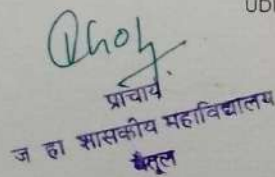 UDI
प्राचार्य
ज हा शासकीय महाविद्यालय
बैतूल